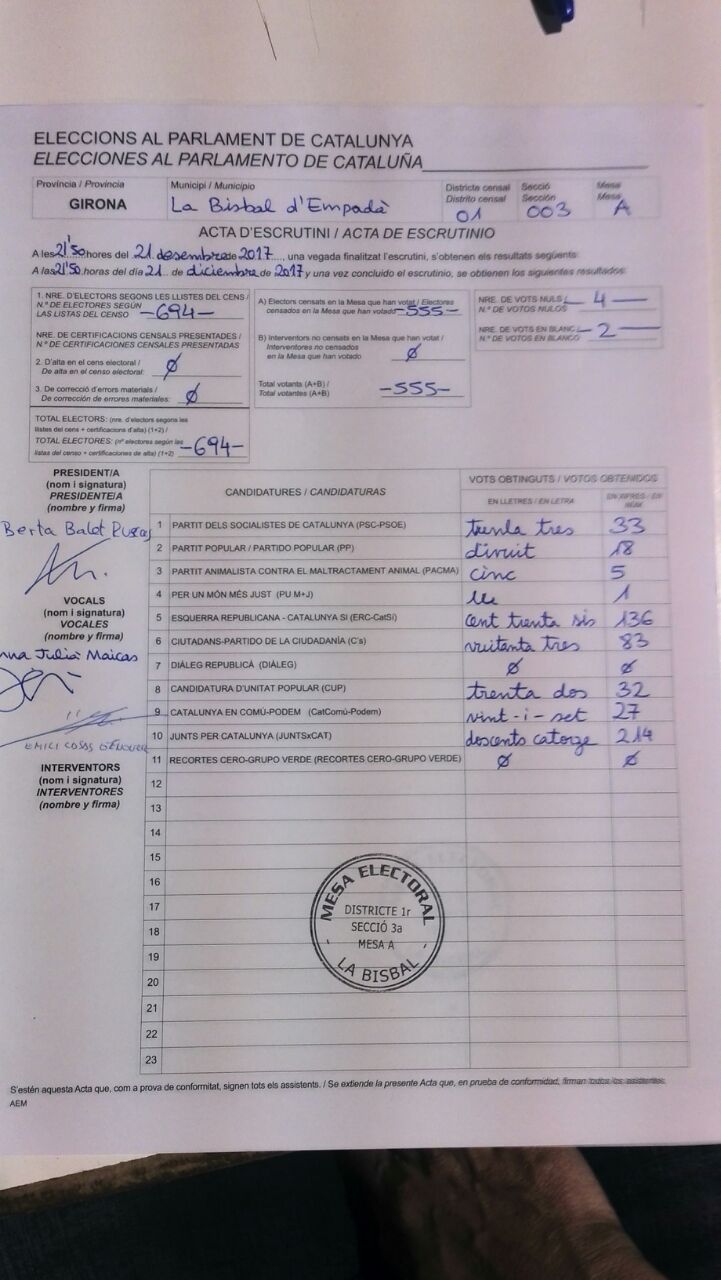 ELECCIONS AL PARLAMENT DE CATALUNYA
ELECCIONES AL PARLAMENTO DE CATALUÑA
Província / Provincia
GIRONA
Municipi / Municipio
La Bisbal d'Empadà
Districte censal
Distrito censal
01
Secció
Sección
003
Mesa
Mesa
A
ACTA D'ESCRUTINI / ACTA DE ESCRUTINIO
A les 21'50 hores del 21 desembre de 2017, una vegada finalitzat l'escrutini, s'obtenen els resultats següents:
A las 21'50 horas del día 21 de diciembre de 2017 y una vez concluido el escrutinio, se obtienen los siguientes resultados:
1. NRE. D'ELECTORS SEGONS LES LLISTES DEL CENS /
N.º DE ELECTORES SEGÚN
LAS LISTAS DEL CENSO -694-
NRE. DE CERTIFICACIONS CENSALS PRESENTADES /
N.º DE CERTIFICACIONES CENSALES PRESENTADAS
2. D'alta en el cens electoral /
De alta en el censo electoral: Ø
3. De correcció d'errors materials /
De corrección de errores materiales: Ø
TOTAL ELECTORS: (nre. d'electors segons les
llistes del cens + certificacions d'alta) (1+2) /
TOTAL ELECTORES: (nº electores según las
listas del censo + certificaciones de alta) (1+2) -694-
A) Electors censats en la Mesa que han votat / Electores
censados en la Mesa que han votado -555-
B) Interventors no censats en la Mesa que han votat /
Interventores no censados
en la Mesa que han votado Ø
Total votants (A+B) /
Total votantes (A+B) -555-
NRE. DE VOTS NULS /
N.º DE VOTOS NULOS 4
NRE. DE VOTS EN BLANC /
N.º DE VOTOS EN BLANCO 2
PRESIDENT/A
(nom i signatura)
PRESIDENTE/A
(nombre y firma)
Berta Balet
VOCALS
(nom i signatura)
VOCALES
(nombre y firma)
Julià Maicas
EMILI COSAS
INTERVENTORS
(nom i signatura)
INTERVENTORES
(nombre y firma)
CANDIDATURES / CANDIDATURAS
VOTS OBTINGUTS / VOTOS OBTENIDOS
EN LLETRES / EN LETRA
EN XIFRES / EN NÚM.
1 PARTIT DELS SOCIALISTES DE CATALUNYA (PSC-PSOE) trenta tres 33
2 PARTIT POPULAR / PARTIDO POPULAR (PP) divuit 18
3 PARTIT ANIMALISTA CONTRA EL MALTRACTAMENT ANIMAL (PACMA) cinc 5
4 PER UN MÓN MÉS JUST (PU M+J) un 1
5 ESQUERRA REPUBLICANA - CATALUNYA SI (ERC-CatSi) cent trenta sis 136
6 CIUTADANS-PARTIDO DE LA CIUDADANÍA (C's) vuitanta tres 83
7 DIÀLEG REPUBLICÀ (DIÀLEG) Ø Ø
8 CANDIDATURA D'UNITAT POPULAR (CUP) trenta dos 32
9 CATALUNYA EN COMÚ-PODEM (CatComú-Podem) vint-i-set 27
10 JUNTS PER CATALUNYA (JUNTSxCAT) doscents catorze 214
11 RECORTES CERO-GRUPO VERDE (RECORTES CERO-GRUPO VERDE) Ø Ø
12
13
14
15
16
17
18
19
20
21
22
23
MESA ELECTORAL
DISTRICTE 1r
SECCIÓ 3a
MESA A
LA BISBAL
S'estén aquesta Acta que, com a prova de conformitat, signen tots els assistents. / Se extiende la presente Acta que, en prueba de conformidad, firman todos los asistentes.
AEM